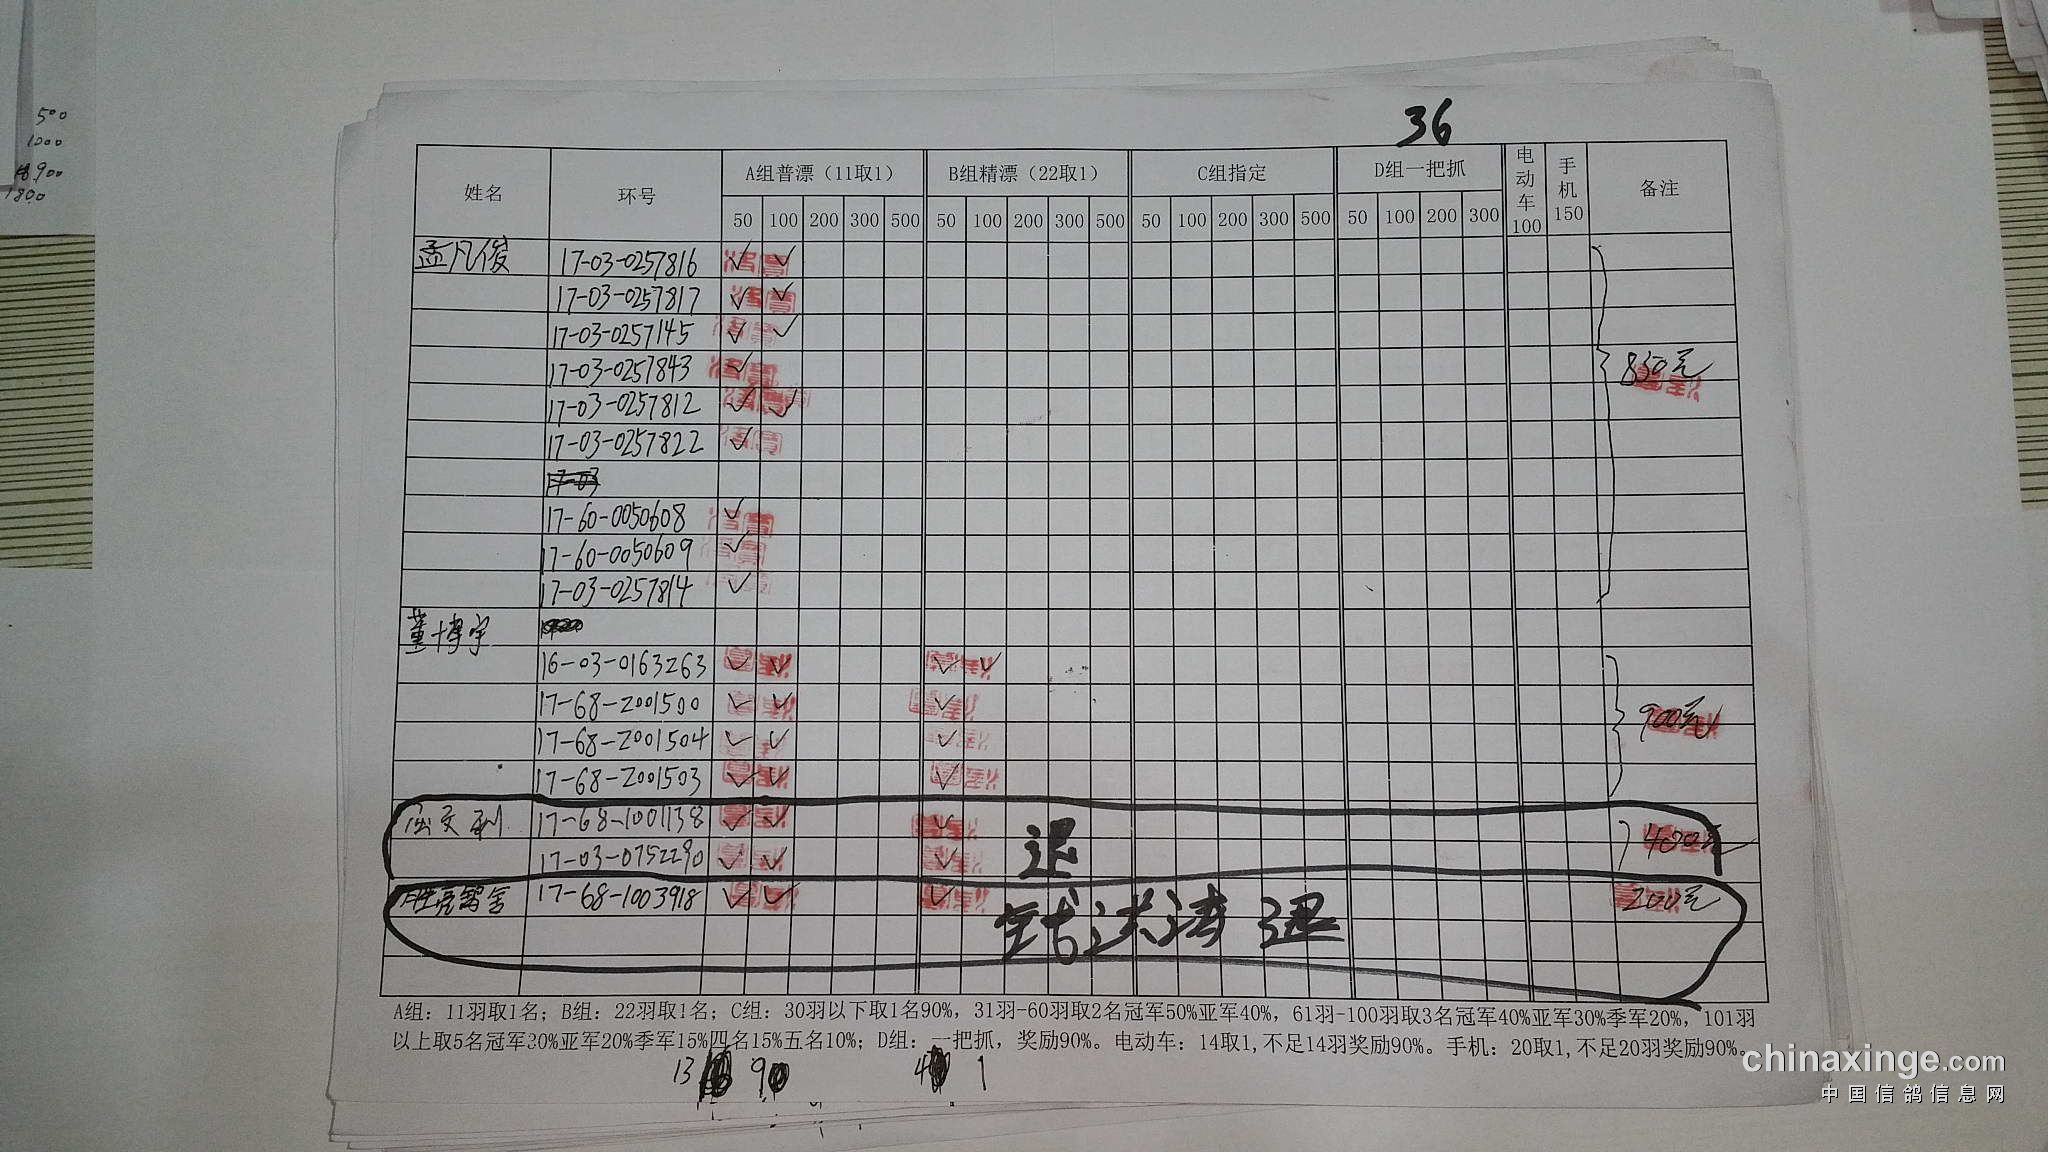 500
1000
18900
1800
36
姓名 环号 A组普漂（11取1） B组精漂（22取1） C组指定 D组一把抓 电动车100 手机150 备注
50 100 200 300 500 50 100 200 300 500 50 100 200 300 500 50 100 200 300
孟凡俊 17-03-0257816 ✓ ✓
17-03-0257817 ✓ ✓
17-03-0257145 ✓ ✓
17-03-0257843 ✓ 850元
17-03-0257812 ✓ ✓
17-03-0257822 ✓
17-03
17-60-0050608 ✓
17-60-0050609 ✓
17-03-0257814 ✓
董博宇
16-03-0163263 ✓ ✓ ✓ ✓
17-68-2001500 ✓ ✓ ✓ 900元
17-68-2001504 ✓ ✓ ✓
17-68-2001503 ✓ ✓ ✓
17-68-1001138 ✓ ✓ ✓ 400元
17-03-0752290 ✓ ✓ ✓ 退
胜亮鸽舍 17-68-1003918 ✓ ✓ ✓ 200元
钱 退
A组：11羽取1名；B组：22羽取1名；C组：30羽以下取1名90%，31羽-60羽取2名冠军50%亚军40%，61羽-100羽取3名冠军40%亚军30%季军20%，101羽
以上取5名冠军30%亚军20%季军15%四名15%五名10%；D组：一把抓，奖励90%。电动车：14取1,不足14羽奖励90%。手机：20取1,不足20羽奖励90%。
13 9 4 1
chinaxinge.com
中国信鸽信息网